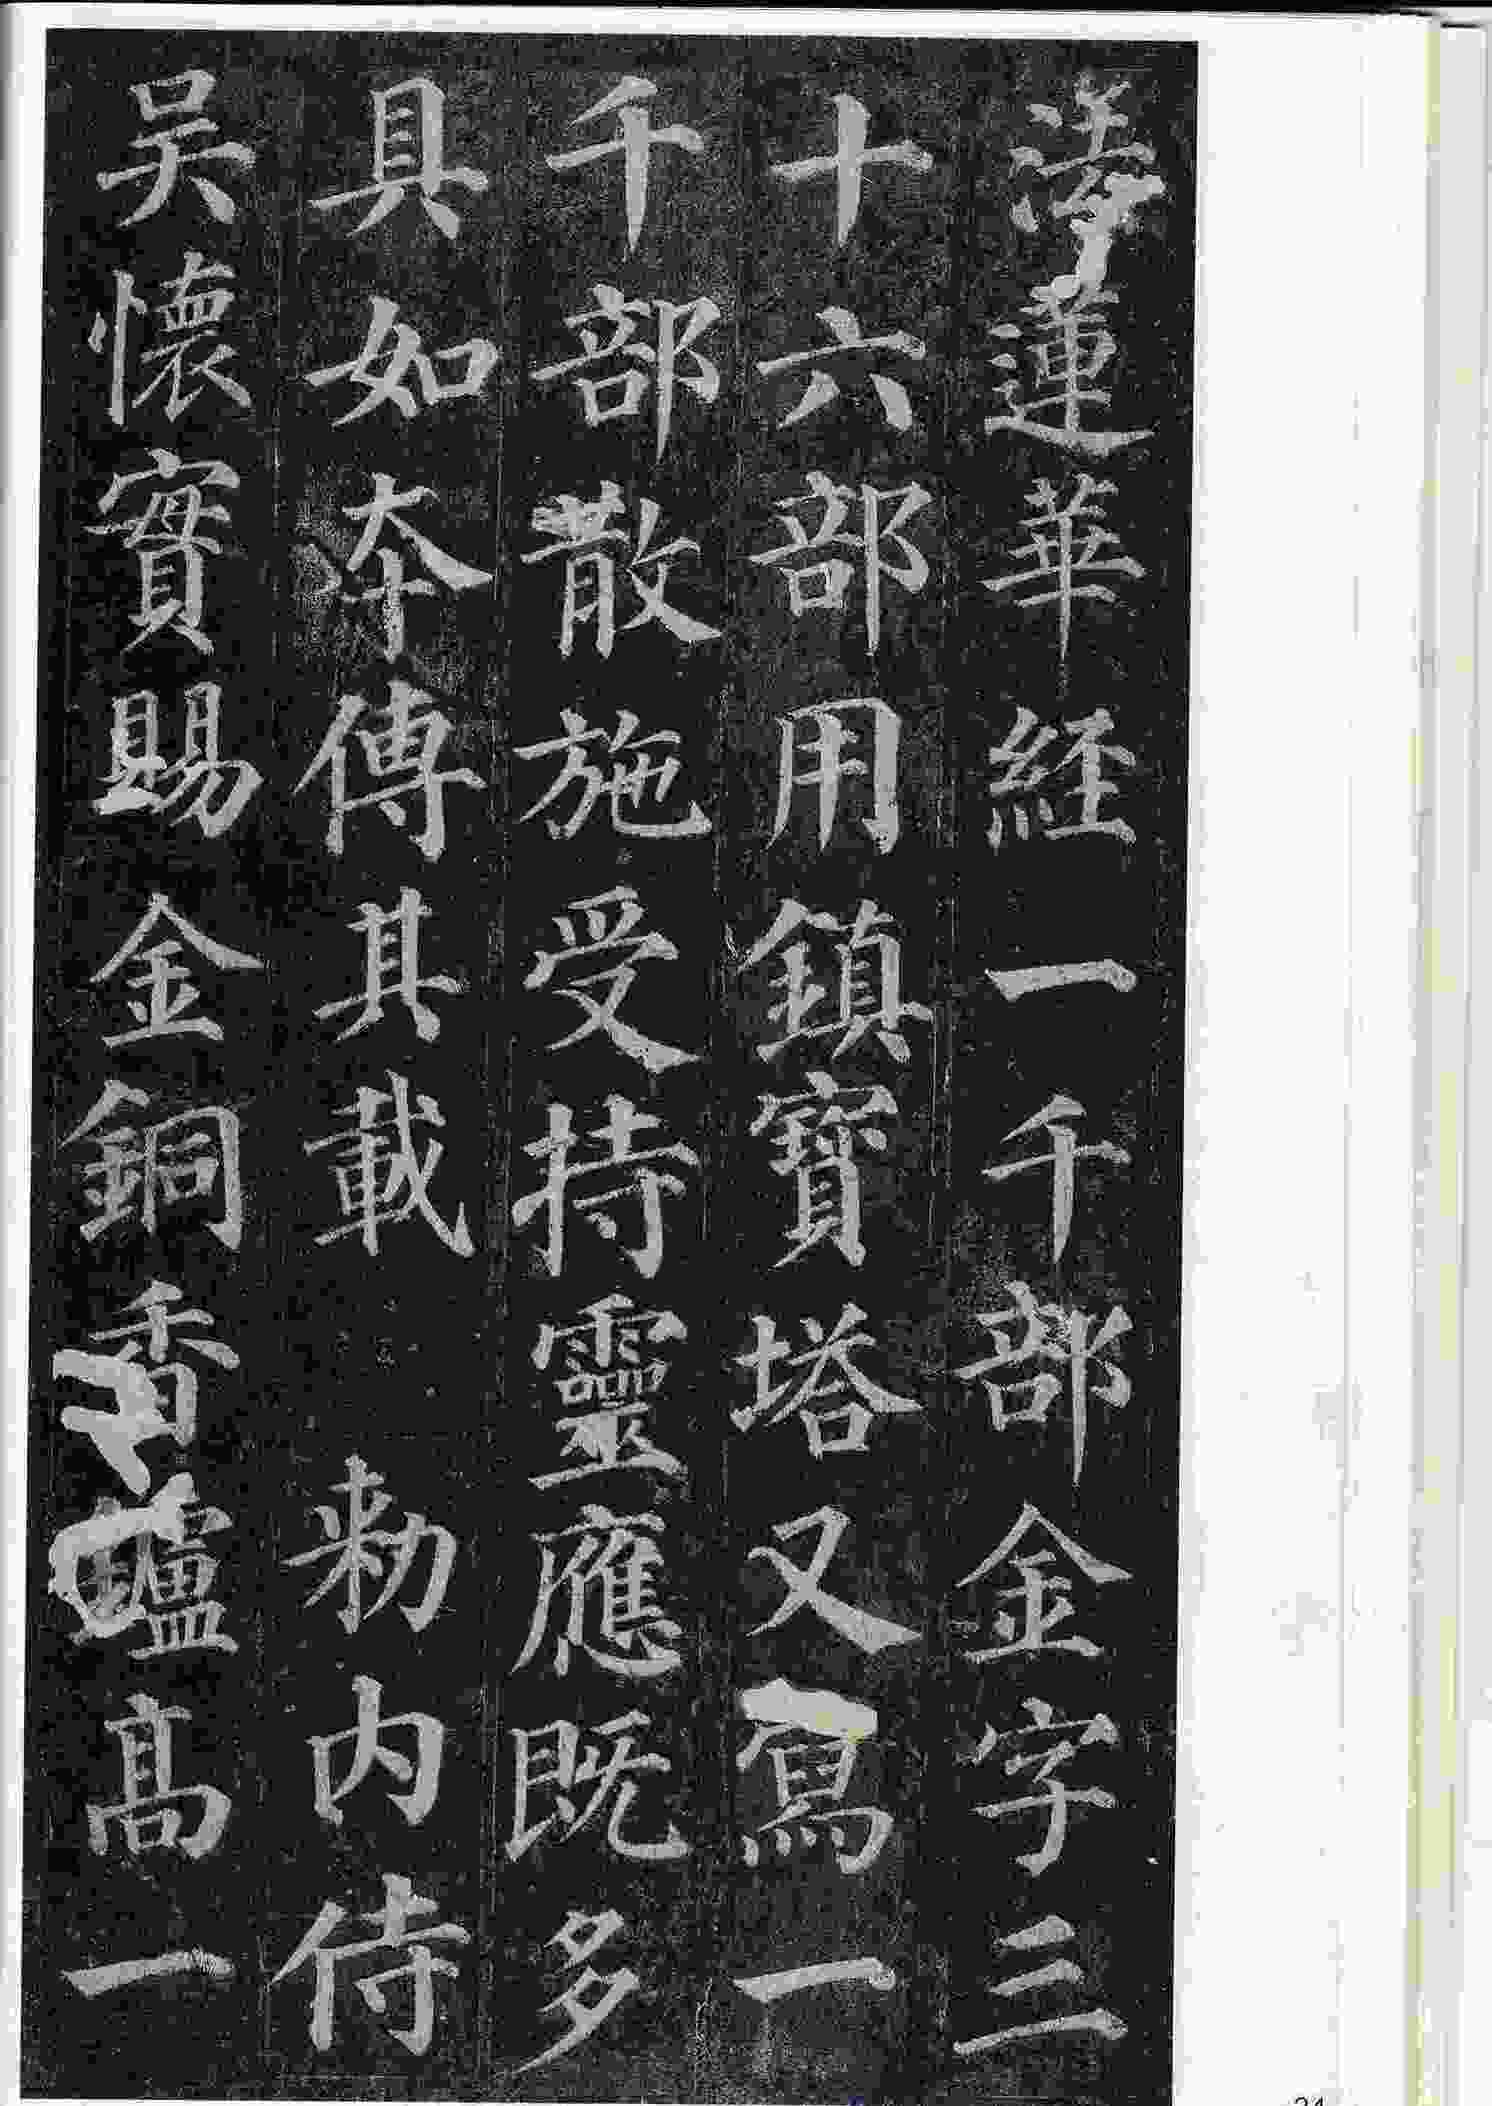 法蓮華經一千部金字三
十六部用鎮寶塔又寫一
千部散施受持靈應既多
具如本傳其載 勑內侍
吴懷實賜金銅香鑪高一